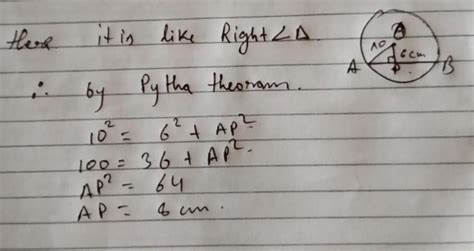 there it is like Right ∠ Δ
∴ by Pytha theoram.
10² = 6² + AP²
100 = 36 + AP²
AP² = 64
AP = 8 cm.
10
6cm
A P B